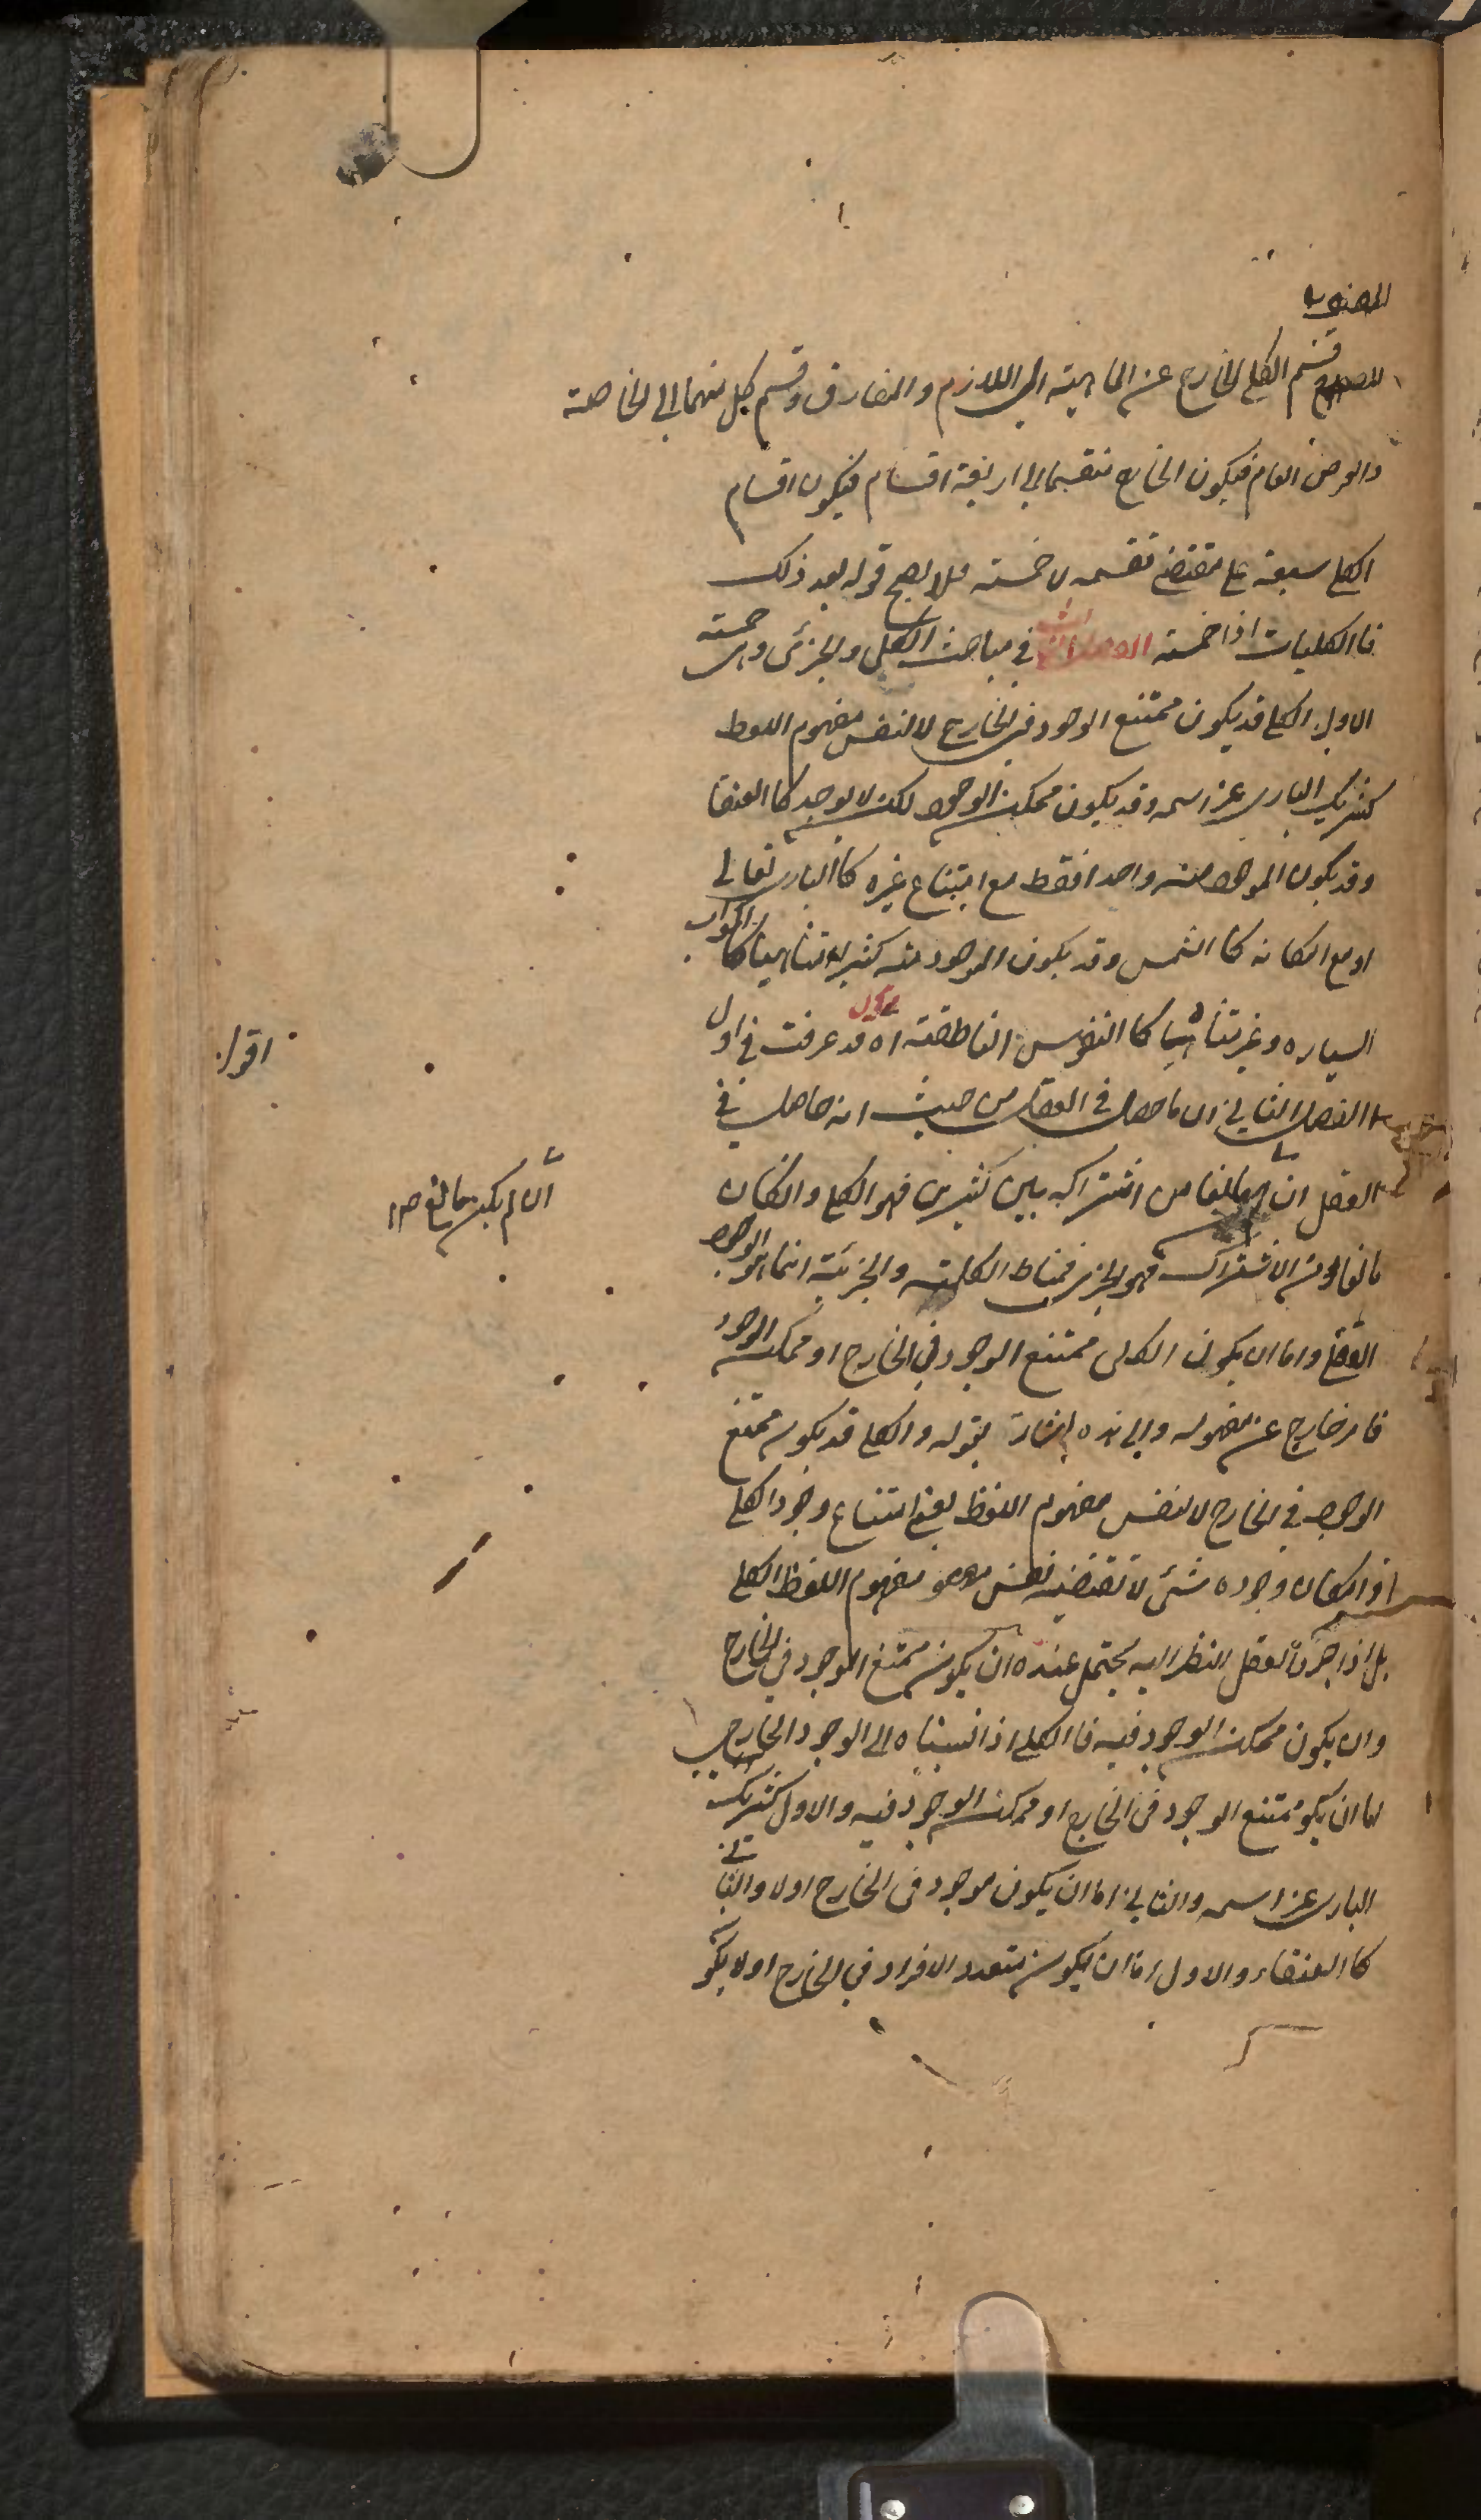 المصنف
قسم الكلي الخارج عن الماهية الى اللازم والمفارق وقسم كل منهما الى الخاصة
والعرض العام فيكون الخارج منقسما الى اربعة اقسام فيكون اقسام
الكلي سبعة على مقتضى تقسيمه لا خمسة فلا يصح قوله بعد ذلك
فاالكليات اذا خمسة الفصل الثالث في مباحث الكلي والجزئي وهي خمسة
الاول الكلي قد يكون ممتنع الوجود في الخارج لا لنفس مفهوم اللفظ
كشريك الباري عز اسمه وقد يكون ممكن الوجود لكن لا يوجد كاالعنقا
وقد يكون الموجود منه واحدا فقط مع امتناع غيره كاالباري تعالى
او مع امكانه كاالشمس وقد يكون الموجود منه كثيرا متناهيا كاالكواكب
السياره وغير متناهيا كاالنفوس الناطقة اه اقول قد عرفت في اول
الفصل الثاني ان ما حصل في العقل من حيث انه حاصل في
العقل ان مانعا من اشتراكه بين كثيرين فهو الكلي وان كان
مانعا من الاشتراك فهو الجزئي فمناط الكلية والجزئية انما هو الوجود
العقلي واما ان يكون الكلي ممتنع الوجود في الخارج او ممكن الوجود
فامر خارج عن مفهومه والى هذه اشارة بقوله والكلي قد يكون ممتنع
الوجود في الخارج لا لنفس مفهوم اللفظ يعني امتناع وجود الكلي
او امكان وجوده شئ لا تقتضيه نفس مفهوم اللفظ الكلي
بل اذا جرد العقل النظر اليه يحتمل عنده ان يكون ممتنع الوجود في الخارج
وان يكون ممكن الوجود فيه فاالكلي اذا نسبناه الى الوجود الخارجي
اما ان يكو ممتنع الوجود في الخارج او ممكن الوجود فيه والاول كشريك
الباري عز اسمه والثاني اما ان يكون موجود في الخارج اولا والثاني
كاالعنقاء والاول اما ان يكون متعدد الافراد في الخارج او لا يكو
اقول
ان لم يكن مانع